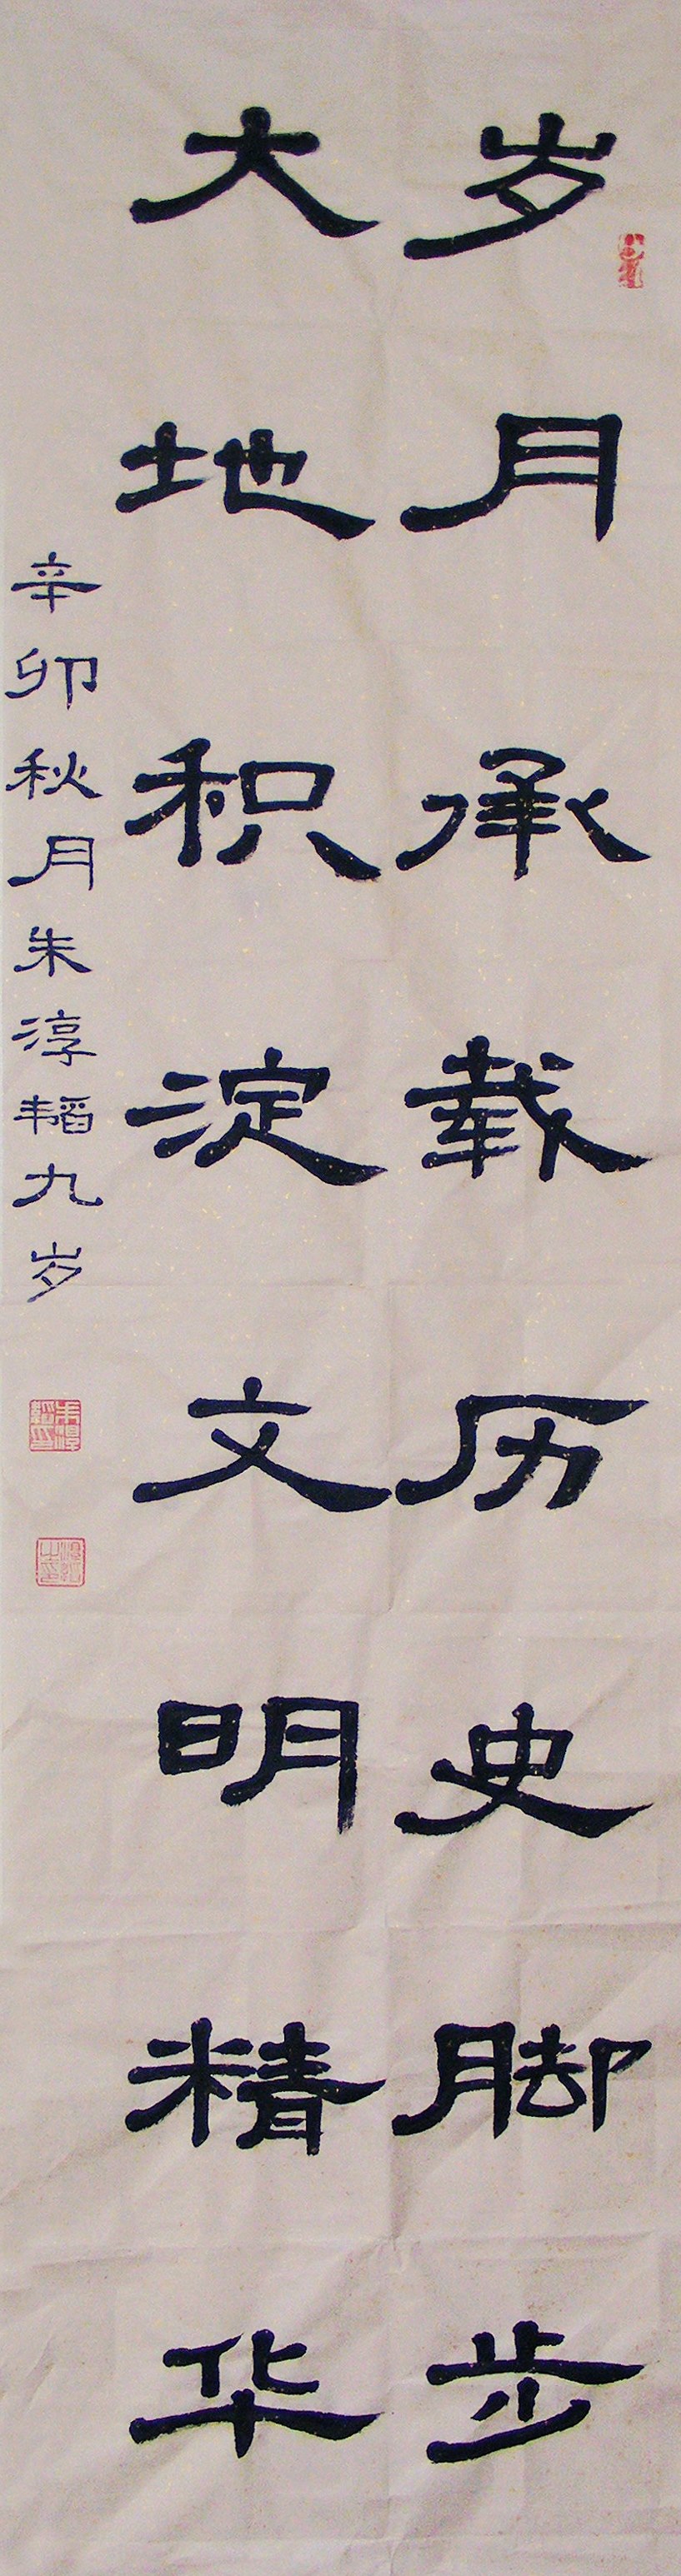 岁月承载历史脚步
大地积淀文明精华
辛卯秋月朱淳韬九岁